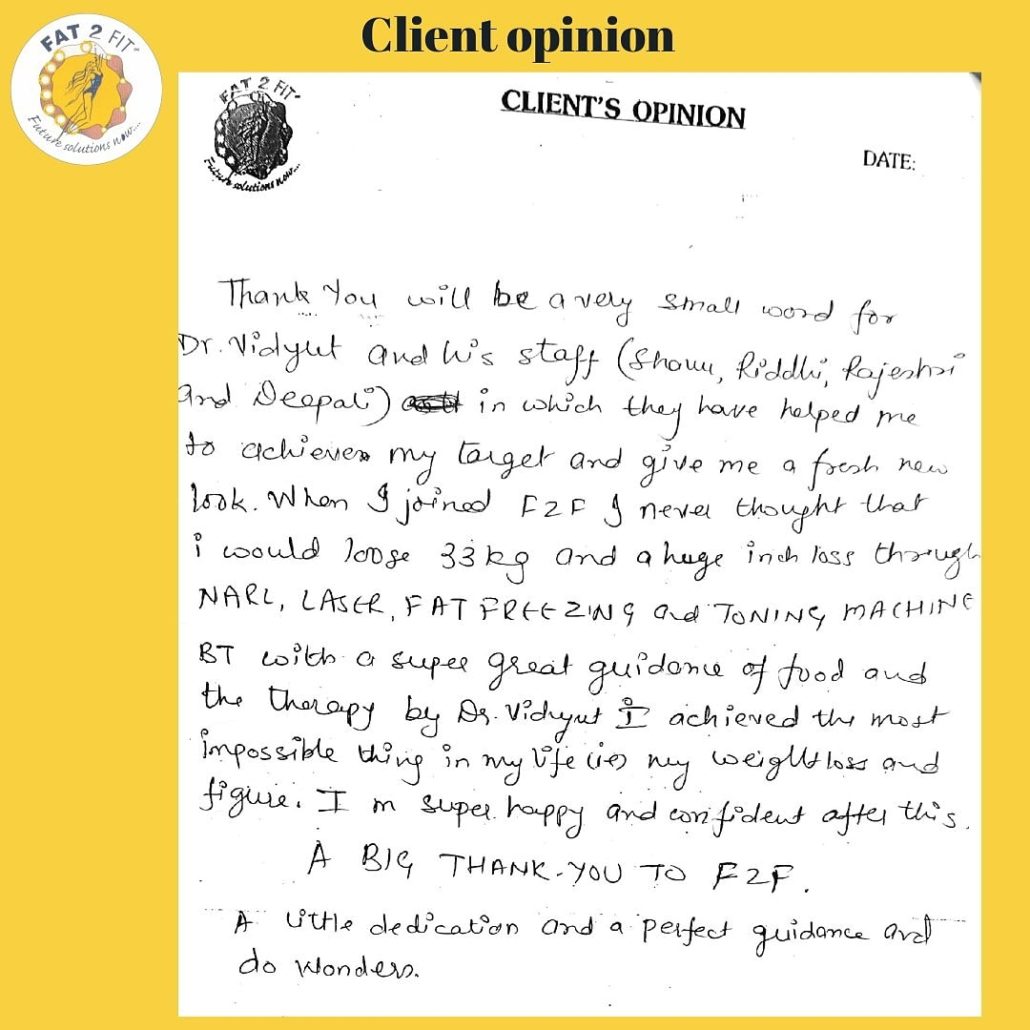 FAT 2 FIT
Future solutions now....
Client opinion
FAT 2 FIT
Future solutions now...
CLIENT'S OPINION
DATE:
Thank You will be a very small word for
Dr. Vidyut and his staff (Riddhi, Rajeshri
and Deepali) in which they have helped me
to achieve my target and give me a fresh new
look. When I joined F2F I never thought that
i would loose 33 kg and a huge inch loss through
NARL, LASER, FAT FREEZING and TONING MACHINE
BT with a super great guidance of food and
the therapy by Dr. Vidyut I achieved the most
impossible thing in my life (ie) my weight loss and
figure. I m super happy and confident after this.
A BIG THANK-YOU TO F2F.
A little dedication and a perfect guidance and
do wonders.